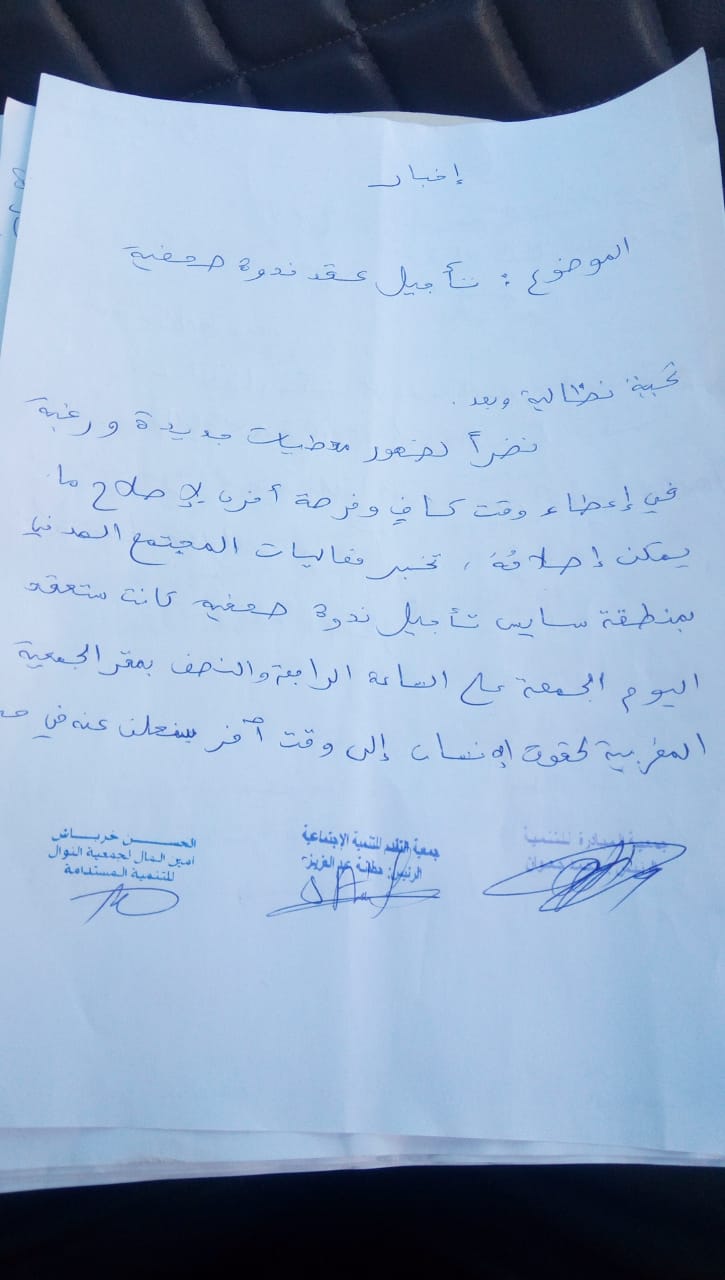 إخبار
الموضوع : تأجيل عقد ندوة صحفية
تحية نضالية وبعد .
نضراً لضهور معطيات جديدة ورغبة
في إعطاء وقت كافي وفرصة أخرى لإصلاح ما
يمكن إصلاحه ، تخبر فعاليات المجتمع المدني
بمنطقة سايس تأجيل ندوة صحفية كانت ستعقد
اليوم الجمعة على الساعة الرابعة والنصف بمقر الجمعية
المغربية لحقوق الإنسان إلى وقت آخر سنعلن عنه في
جمعية المبادرة للتنمية
الرئيس
جمعية التقدم للتنمية الإجتماعية
الرئيس: عبد العزيز
الحسن خرباش
امين المال لجمعية النوال
للتنمية المستدامة